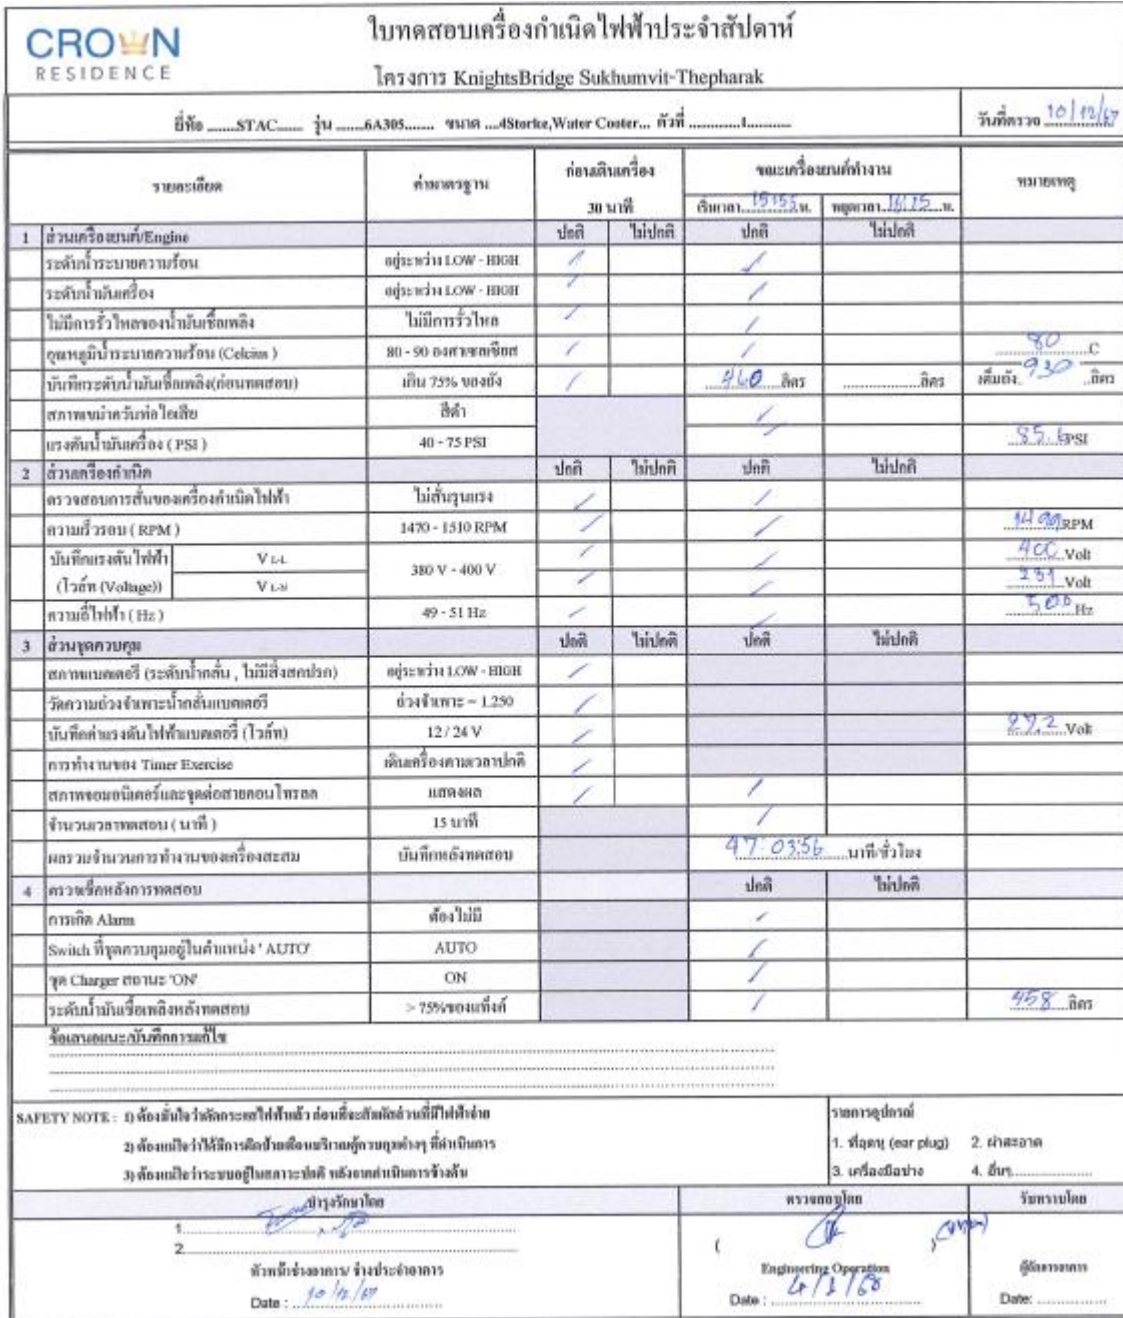 CROWN
RESIDENCE
ใบทดสอบเครื่องกำเนิดไฟฟ้าประจำสัปดาห์
โครงการ KnightsBridge Sukhumvit-Thepharak
ยี่ห้อ ........STAC....... รุ่น ........6A305........ ขนาด ....4Storke,Water Cooter... ตัวที่ .............1...........
วันที่ตรวจ 10/12/67
รายละเอียด ค่ามาตรฐาน ก่อนเดินเครื่อง 30 นาที ขณะเครื่องยนต์ทำงาน หมายเหตุ
เริ่มเวลา 15:55 น. หยุดเวลา 16:15 น.
1 ส่วนเครื่องยนต์/Engine ปกติ ไม่ปกติ ปกติ ไม่ปกติ
ระดับน้ำระบายความร้อน อยู่ระหว่าง LOW - HIGH
ระดับน้ำมันเครื่อง อยู่ระหว่าง LOW - HIGH
ไม่มีการรั่วไหลของน้ำมันเชื้อเพลิง ไม่มีการรั่วไหล
อุณหภูมิน้ำระบายความร้อน (Celcius ) 80 - 90 องศาเซลเซียส 80 C
บันทึกระดับน้ำมันเชื้อเพลิง(ก่อนทดสอบ) เกิน 75% ของถัง 460 ลิตร ลิตร เต็มถัง 930 ลิตร
สภาพเขม่าควันท่อไอเสีย สีดำ
แรงดันน้ำมันเครื่อง ( PSI ) 40 - 75 PSI 85.6 PSI
2 ส่วนเครื่องกำเนิด ปกติ ไม่ปกติ ปกติ ไม่ปกติ
ตรวจสอบการสั่นของเครื่องกำเนิดไฟฟ้า ไม่สั่นรุนแรง
ความเร็วรอบ ( RPM ) 1470 - 1510 RPM 1499 RPM
บันทึกแรงดันไฟฟ้า V L-L 380 V - 400 V 400 Volt
(โวล์ท (Voltage)) V L-N 231 Volt
ความถี่ไฟฟ้า ( Hz ) 49 - 51 Hz 50.0 Hz
3 ส่วนชุดควบคุม ปกติ ไม่ปกติ ปกติ ไม่ปกติ
สภาพแบตเตอรี่ (ระดับน้ำกลั่น , ไม่มีสิ่งสกปรก) อยู่ระหว่าง LOW - HIGH
วัดความถ่วงจำเพาะน้ำกลั่นแบตเตอรี่ ถ่วงจำเพาะ ~ 1.250
บันทึกค่าแรงดันไฟฟ้าแบตเตอรี่ (โวล์ท) 12 / 24 V 27.2 Volt
การทำงานของ Timer Exercise เดินเครื่องตามเวลาปกติ
สภาพจอมอนิเตอร์และจุดต่อสายคอนโทรลล แสดงผล
จำนวนเวลาทดสอบ ( นาที ) 15 นาที
ผลรวมจำนวนการทำงานของเครื่องสะสม บันทึกหลังทดสอบ 47:03:56 นาที/ชั่วโมง
4 ตรวจเช็คหลังการทดสอบ ปกติ ไม่ปกติ
การเกิด Alarm ต้องไม่มี
Switch ที่ชุดควบคุมอยู่ในตำแหน่ง ' AUTO' AUTO
ชุด Charger สถานะ 'ON' ON
ระดับน้ำมันเชื้อเพลิงหลังทดสอบ > 75%ของแท็งค์ 458 ลิตร
ข้อเสนอแนะ/บันทึกการแก้ไข
SAFETY NOTE : 1) ต้องมั่นใจว่าตัดกระแสไฟฟ้าแล้ว ก่อนที่จะสัมผัสส่วนที่มีไฟฟ้าจ่าย
2) ต้องแน่ใจว่าได้มีการติดป้ายเตือนบริเวณตู้ควบคุมต่างๆ ที่ดำเนินการ
3) ต้องแน่ใจว่าระบบอยู่ในสภาวะปกติ หลังจากดำเนินการข้างต้น
รายการอุปกรณ์
1. ที่อุดหู (ear plug) 2. ผ้าสะอาด
3. เครื่องมือช่าง 4. อื่นๆ
บำรุงรักษาโดย ตรวจสอบโดย รับทราบโดย
1.
2.
หัวหน้าช่างอาคาร/ ช่างประจำอาคาร
Date : 10/12/67
Engineering Operation
Date : 4/1/68
ผู้จัดการอาคาร
Date: